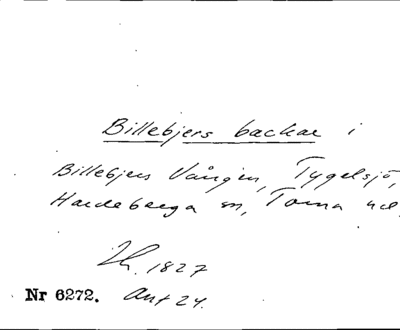 Billebjers backar i
Billebjers Vången, Tygelsjö,
Hardeberga sn, Torna hd.
1827
Nr 6272. Ant 24.